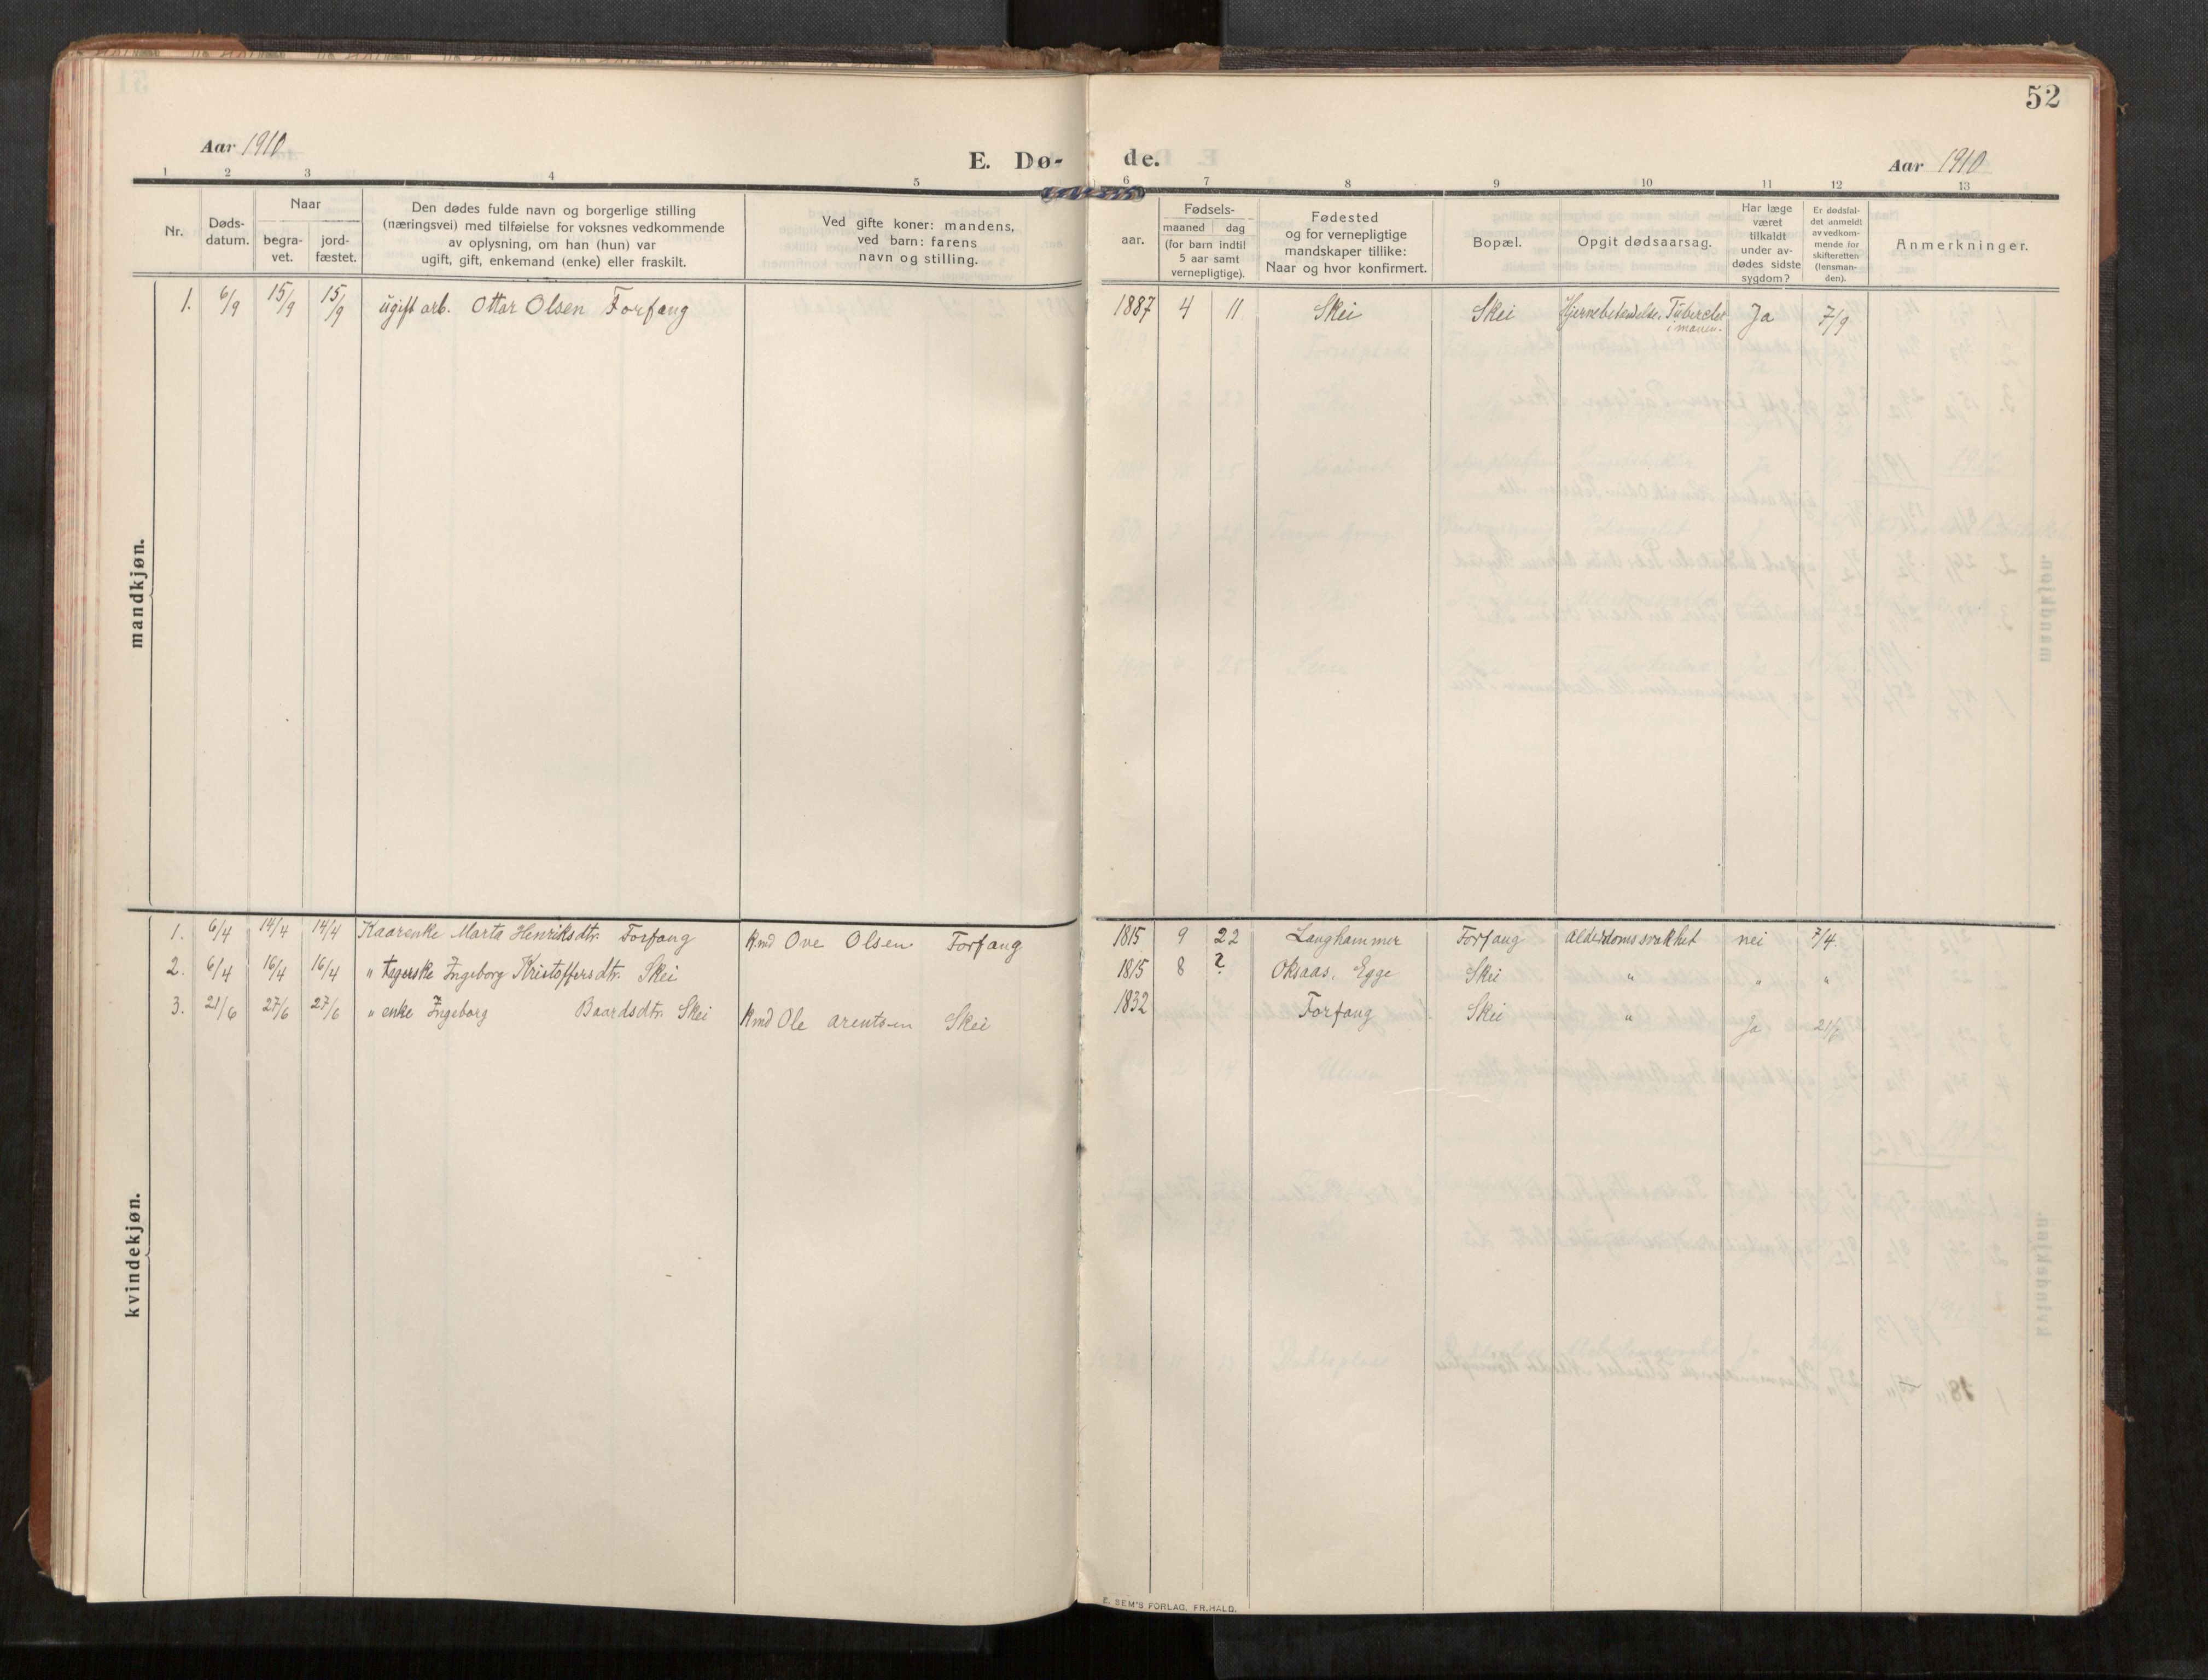 52
Aar 1910
E. Dø- de.
Aar 1910
1 2 3 4 5 6 7 8 9 10 11 12 13
Nr.
Døds-
datum.
Naar
begra-
vet.
jord-
fæstet.
Den dødes fulde navn og borgerlige stilling
(næringsvei) med tilføielse for voksnes vedkommende
av oplysning, om han (hun) var
ugift, gift, enkemand (enke) eller fraskilt.
Ved gifte koner: mandens,
ved barn: farens
navn og stilling.
aar.
Fødsels-
maaned dag
(for barn indtil
5 aar samt
vernepligtige).
Fødested
og for vernepligtige
mandskaper tillike:
Naar og hvor konfirmert.
Bopæl.
Opgit dødsaarsag.
Har læge
været
tilkaldt
under av-
dødes sidste
sygdom?
Er dødsfal-
det anmeldt
av vedkom-
mende for
skifteretten
(lensman-
den).
Anmerkninger.
mandkjøn.
1. 6/9 15/9 15/9 ugift arb. Ottar Olsen Forfang 1887 4 11 Skei Skei Hjernebetændelse. Tuberkler Ja 7/9
i maven.
kvindekjøn.
1. 6/4 14/4 14/4 Kaarenke Marta Henriksdtr. Forfang Kmd Ove Olsen Forfang 1815 9 22 Langhammer Forfang Alderdomssvakhet nei 7/4.
2. 6/4 16/4 16/4 " Ingeborg Kristoffersdtr. Skei 1815 8 ? Oksaas, Egge Skei " " "
3. 21/6 27/6 27/6 " enke Ingeborg Baardsdtr. Skei Kmd Ole Arentsen Skei 1832 Forfang Skei " Ja 21/6
E. SEM'S FORLAG, FR.HALD.